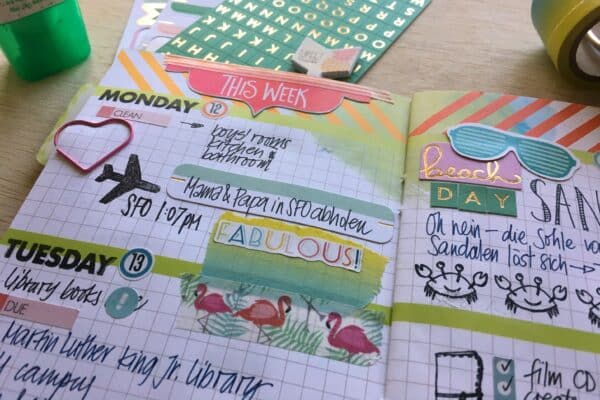 THIS WEEK
MONDAY 12
CLEAN
→ boys' rooms
kitchen &
bathroom
SFO 1:07pm
Mama & Papa in SFO abholen
FABULOUS!
TUESDAY 13
library books
DUE
Martin Luther King Jr. Library
campus
beach
DAY
SAN
Oh nein – die Sohle
Sandalen löst sich →
film CD
create